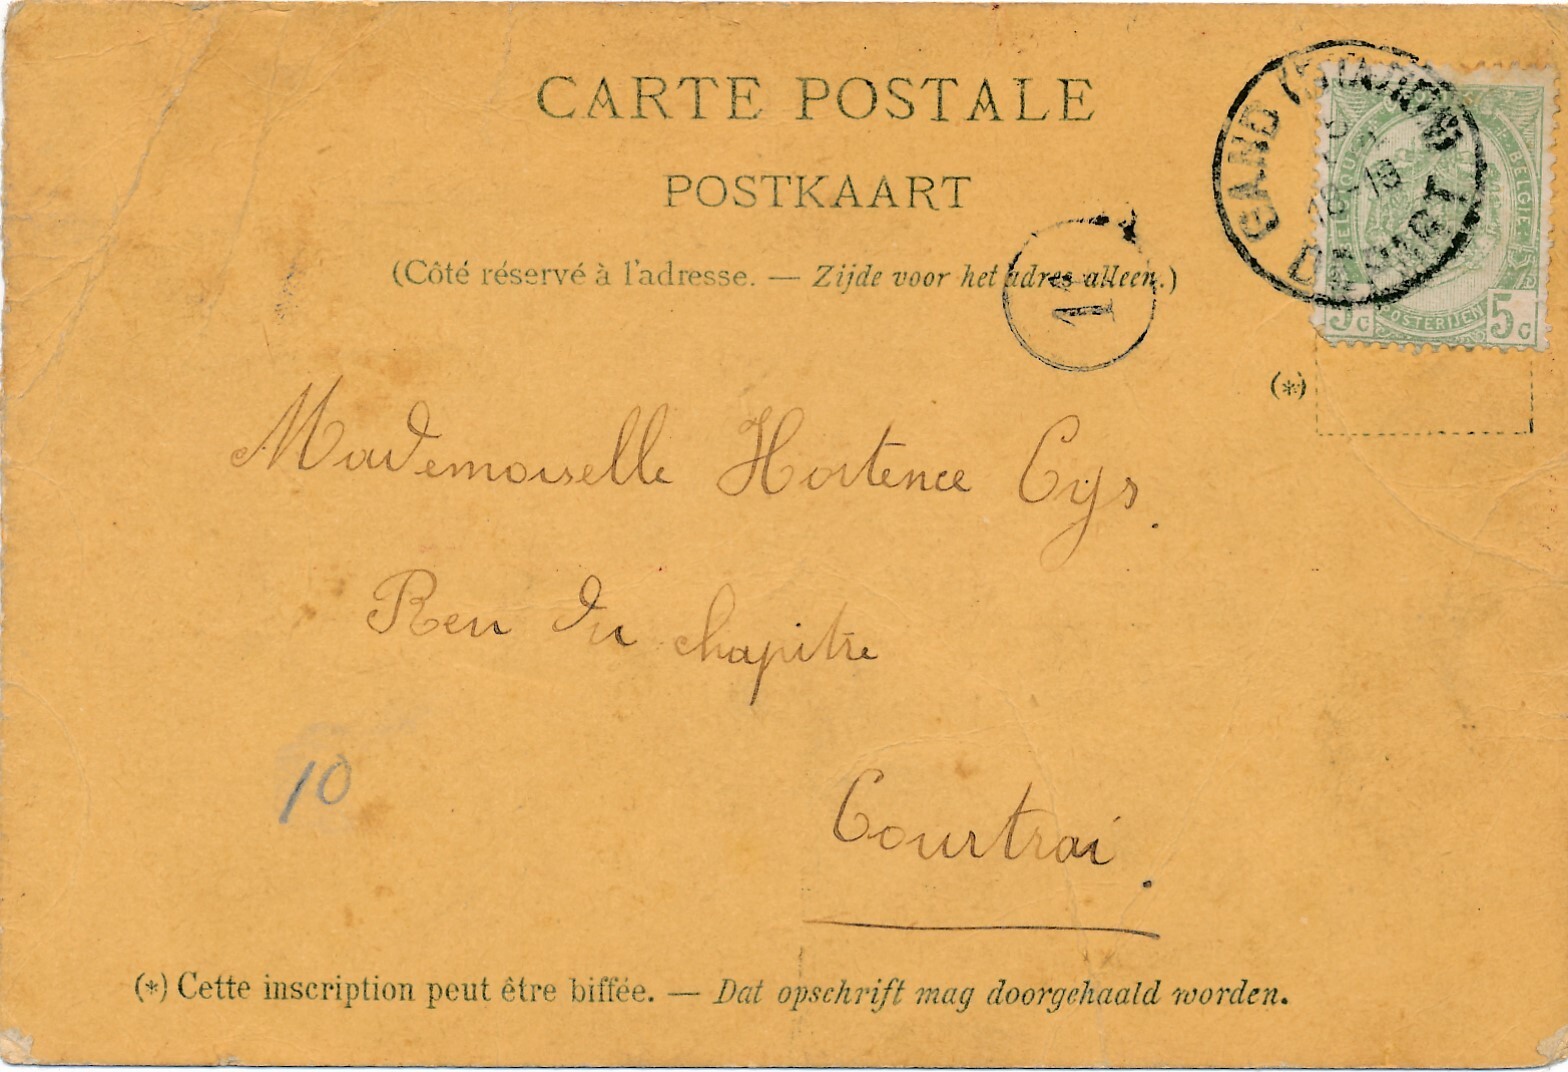 CARTE POSTALE
POSTKAART
(Côté réservé à l'adresse. — Zijde voor het adres alleen.)
GAND
DÉPART
POSTERIJEN
BELGIE
5c 5c
(*)
Mademoiselle Hortence Cys.
Reu du chapitre
10
Courtrai.
(*) Cette inscription peut être biffée. — Dat opschrift mag doorgehaald worden.